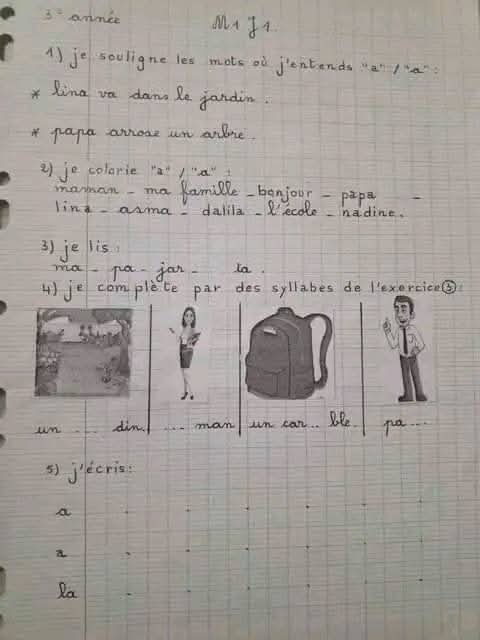 3° année M1 J1.
1) je souligne les mots où j'entends "a" / "a" :
* lina va dans le jardin.
* papa arrose un arbre.
2) je colorie "a" / "a" :
maman - ma famille - bonjour - papa -
lina - asma - dalila - l'école - nadine.
3) je lis :
ma - pa - jar - ta.
4) je complète par des syllabes de l'exercice ③ :
un ... din. ... man un car... ble. pa ...
5) j'écris :
a . . . . .
a . . . . .
la . . . . .